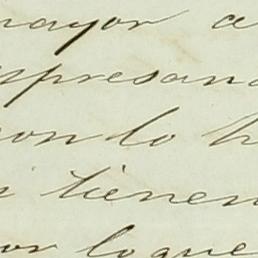 mayor a
xpresan
con lo h
i tienen
or loque